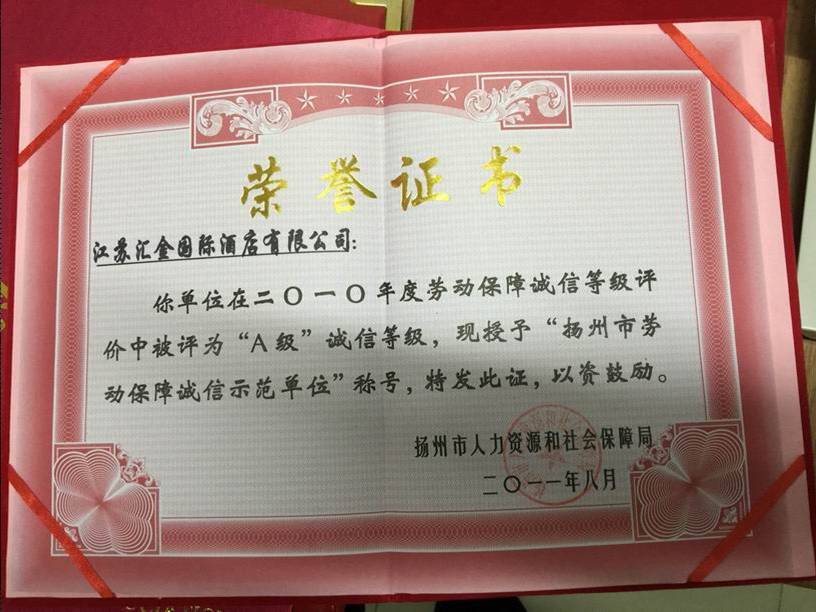 荣誉证书
江苏汇金国际酒店有限公司:
你单位在二〇一〇年度劳动保障诚信等级评
价中被评为“A级”诚信等级，现授予“扬州市劳
动保障诚信示范单位”称号，特发此证，以资鼓励。
扬州市人力资源和社会保障局
二〇一一年八月